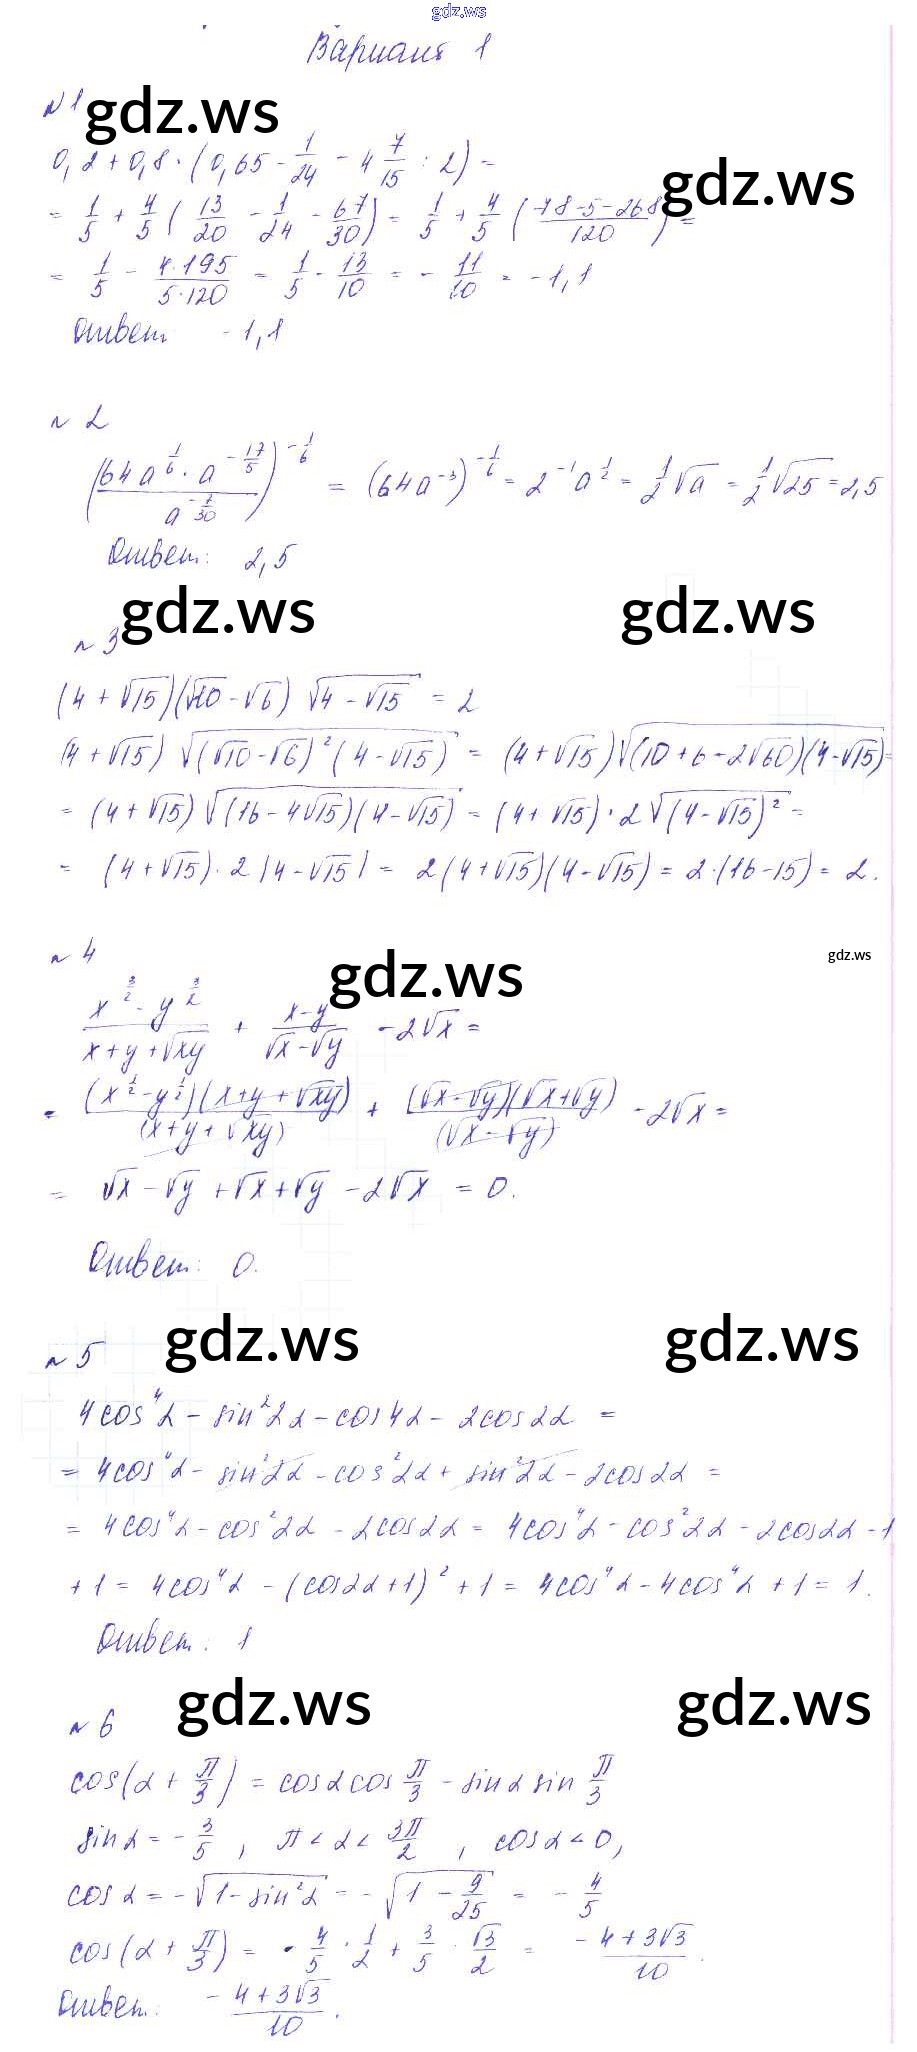 gdz.ws
Вариант 1
N 1
gdz.ws
0,2 + 0,8 · (0,65 - 1/24 - 4 7/15 : 2) =
gdz.ws
= 1/5 + 4/5 (13/20 - 1/24 - 67/30) = 1/5 + 4/5 ((78-5-268)/120) =
= 1/5 - (4·195)/(5·120) = 1/5 - 13/10 = - 11/10 = -1,1
Ответ: -1,1
N 2
((64a^(1/6) · a^(-17/5))/(a^(-7/30)))^(-1/6) = (64a^(-3))^(-1/6) = 2^(-1)a^(1/2) = 1/2 √a = 1/2 √25 = 2,5
Ответ: 2,5
gdz.ws gdz.ws
N 3
(4 + √15)(√10 - √6) √(4 - √15) = 2
(4 + √15) √((√10 - √6)²(4 - √15)) = (4 + √15)√((10 + 6 - 2√60)(4 - √15)) =
= (4 + √15) √((16 - 4√15)(4 - √15)) = (4 + √15) · 2√((4 - √15)²) =
= (4 + √15) · 2 |4 - √15| = 2(4 + √15)(4 - √15) = 2·(16-15) = 2.
N 4
gdz.ws
gdz.ws
(x^(3/2) - y^(3/2))/(x + y + √xy) + (x-y)/(√x - √y) - 2√x =
= ((x^(1/2) - y^(1/2))(x + y + √xy))/((x + y + √xy)) + ((√x - √y)(√x + √y))/((√x - √y)) - 2√x =
= √x - √y + √x + √y - 2√x = 0.
Ответ: 0.
gdz.ws gdz.ws
N 5
4cos⁴α - sin²2α - cos4α - 2cos2α =
= 4cos⁴α - sin²2α - cos²2α + sin²2α - 2cos2α =
= 4cos⁴α - cos²2α - 2cos2α = 4cos⁴α - cos²2α - 2cos2α - 1
+ 1 = 4cos⁴α - (cos2α + 1)² + 1 = 4cos⁴α - 4cos⁴α + 1 = 1.
Ответ: 1
gdz.ws gdz.ws
N 6
cos(α + π/3) = cosα cos π/3 - sinα sin π/3
sinα = - 3/5 , π < α < 3π/2 , cosα < 0,
cosα = -√(1 - sin²α) = -√(1 - 9/25) = - 4/5
cos(α + π/3) = - 4/5 · 1/2 + 3/5 · √3/2 = (-4 + 3√3)/10.
Ответ: (-4 + 3√3)/10.